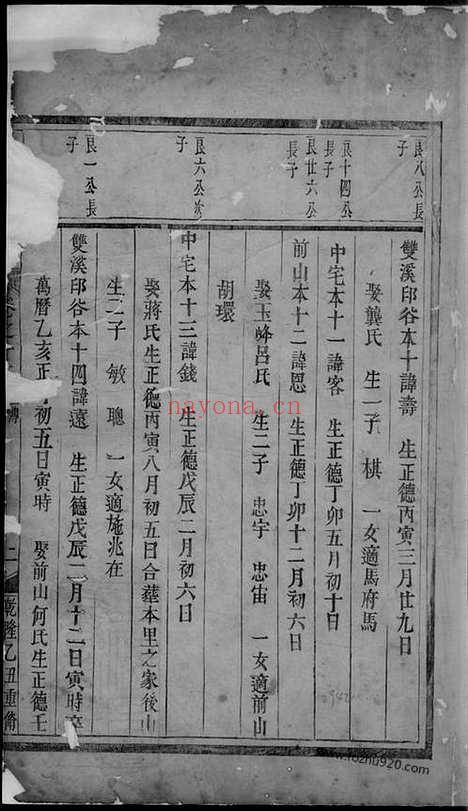 良八公長子
雙溪印谷本十諱壽 生正德丙寅三月廿九日
娶龔氏 生一子 棋 一女適馬府馬
良十四公長子
中宅本十一諱客 生正德丁卯五月初十日
良廿六公長子
前山本十二諱恩 生正德丁卯十二月初六日
娶玉峰呂氏 生二子 忠宇 忠宙 一女適前山
胡環
良六公次子
中宅本十三諱錢 生正德戊辰二月初六日
娶蔣氏生正德丙寅八月初五日合葬本里之家後山
生二子 敏 聰 一女適施兆在
良一公長子
雙溪印谷本十四諱遠 生正德戊辰二月十二日寅時卒
萬曆乙亥正月初五日寅時 娶前山何氏生正德壬
二
乾隆乙丑重脩
nayona.cn
www.fozhu920.com